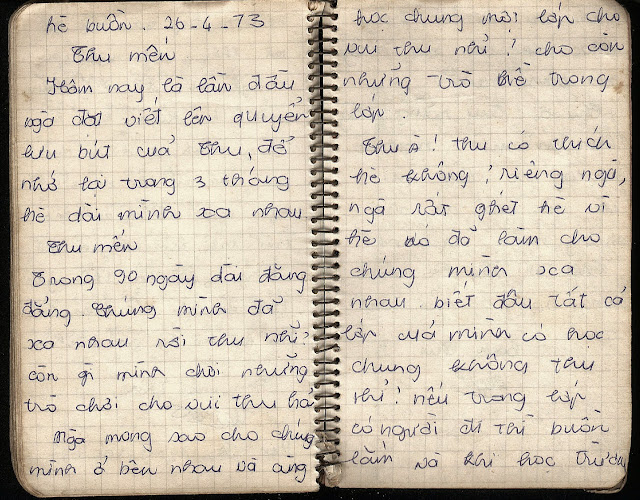 hè buồn. 26-4-73
Thu mến
Hôm nay là lần đầu
ngà đặt viết lên quyển
lưu bút cuả Thu, để
nhớ lại trong 3 tháng
hè dài mình xa nhau
Thu mến
Trong 90 ngày dài đằng
đẳng. Chúng mình đã
xa nhau rồi thu nhỉ?
còn gì mình chơi những
trò chơi cho vui thu hả
Ngà mong sao cho chúng
mình ở bên nhau và cùng
học chung môi lớp cho
vui thu nhỉ! cho còn
những trò hề trong
lớp.
Thu À! thu có thích
hè không! riêng ngà,
ngà rất ghét hè vì
hè nó đã làm cho
chúng mình xa
nhau. biết đâu tất cả
lớp cuả mình có học
chung không thu
nhỉ! nếu trong lớp
có người đi thì buồn
lắm và khi học